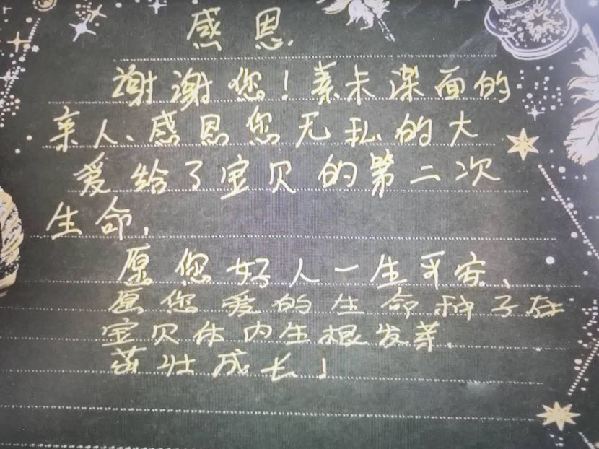 感恩
谢谢您!素未谋面的
亲人、感恩您无私的大
爱给了宝贝的第二次
生命,
愿您好人一生平安、
愿您爱的生命种子在
宝贝体内生根发芽、
茁壮成长!